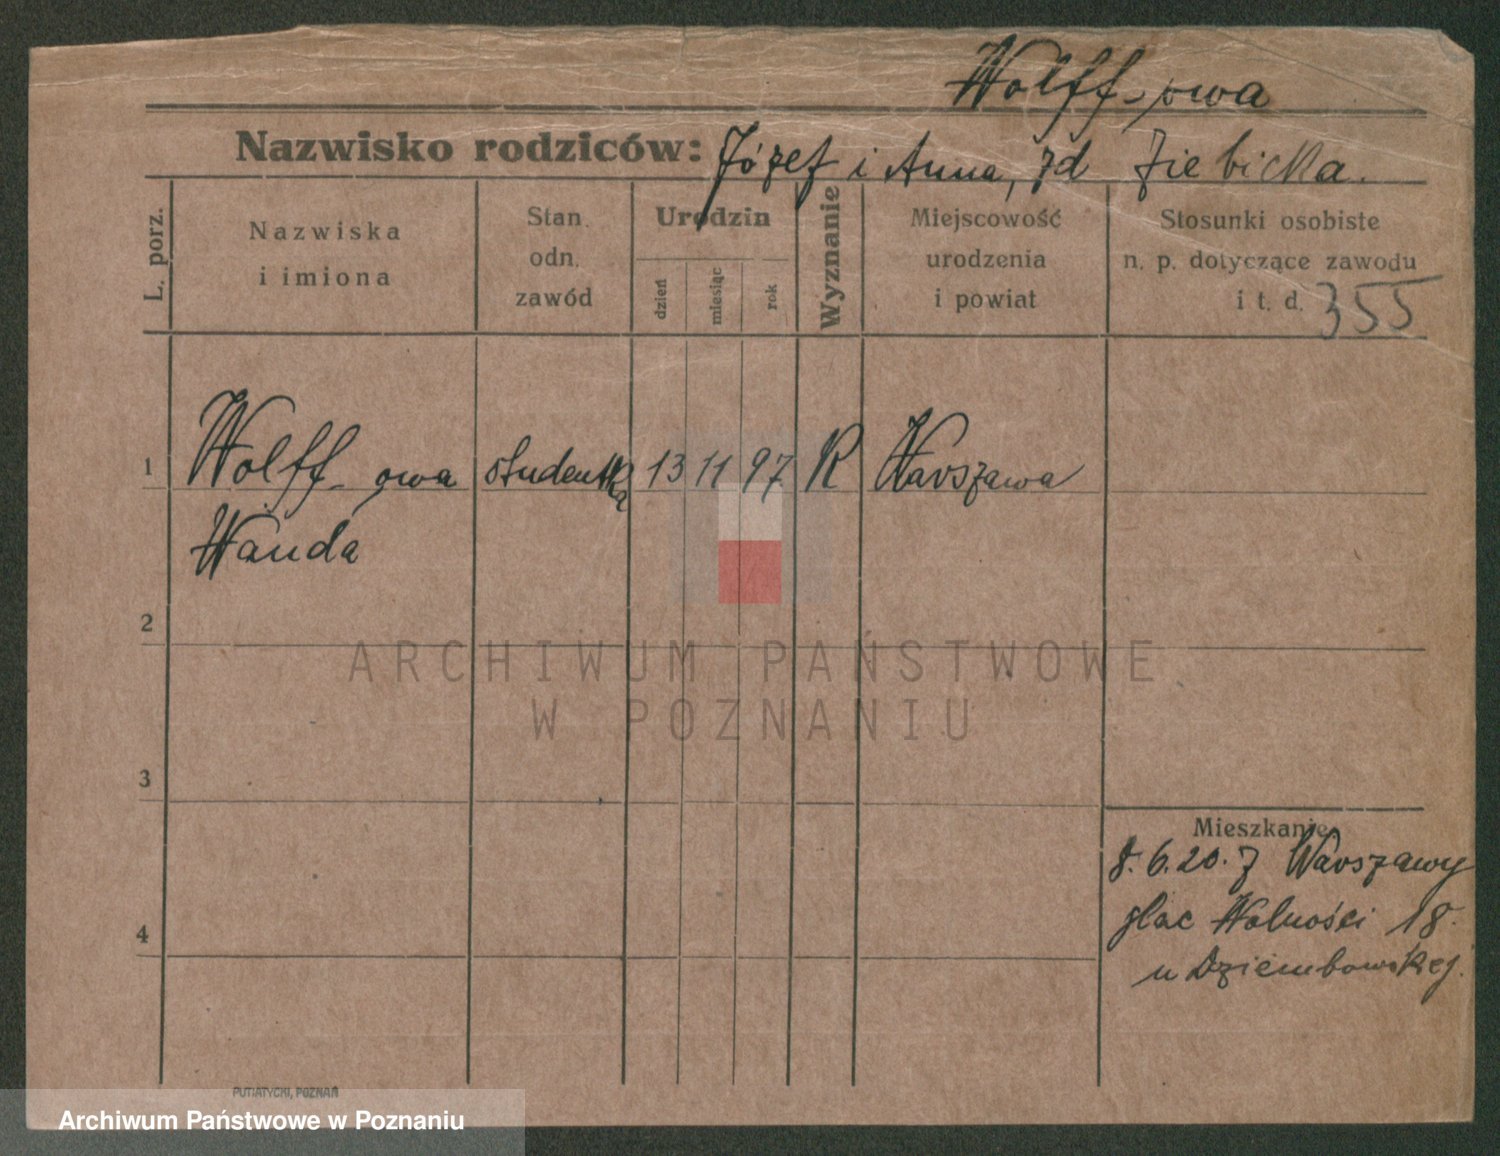 Wolff-owa
Nazwisko rodziców: Józef i Anna, zd Ziebicka.
L. porz.
Nazwiska
i imiona
Stan.
odn.
zawód
Urodzin
dzień
miesiąc
rok
Wyznanie
Miejscowość
urodzenia
i powiat
Stosunki osobiste
n. p. dotyczące zawodu
i t. d. 355
1 Wolff-owa studentka 13 11 97 R Warszawa
Wanda
2
3
4
Mieszkanie.
8.6.20. z Warszawy
plac Wolności 18.
u Dziembowskej.
ARCHIWUM PAŃSTWOWE
W POZNANIU
PUTIATYCKI, POZNAŃ
Archiwum Państwowe w Poznaniu